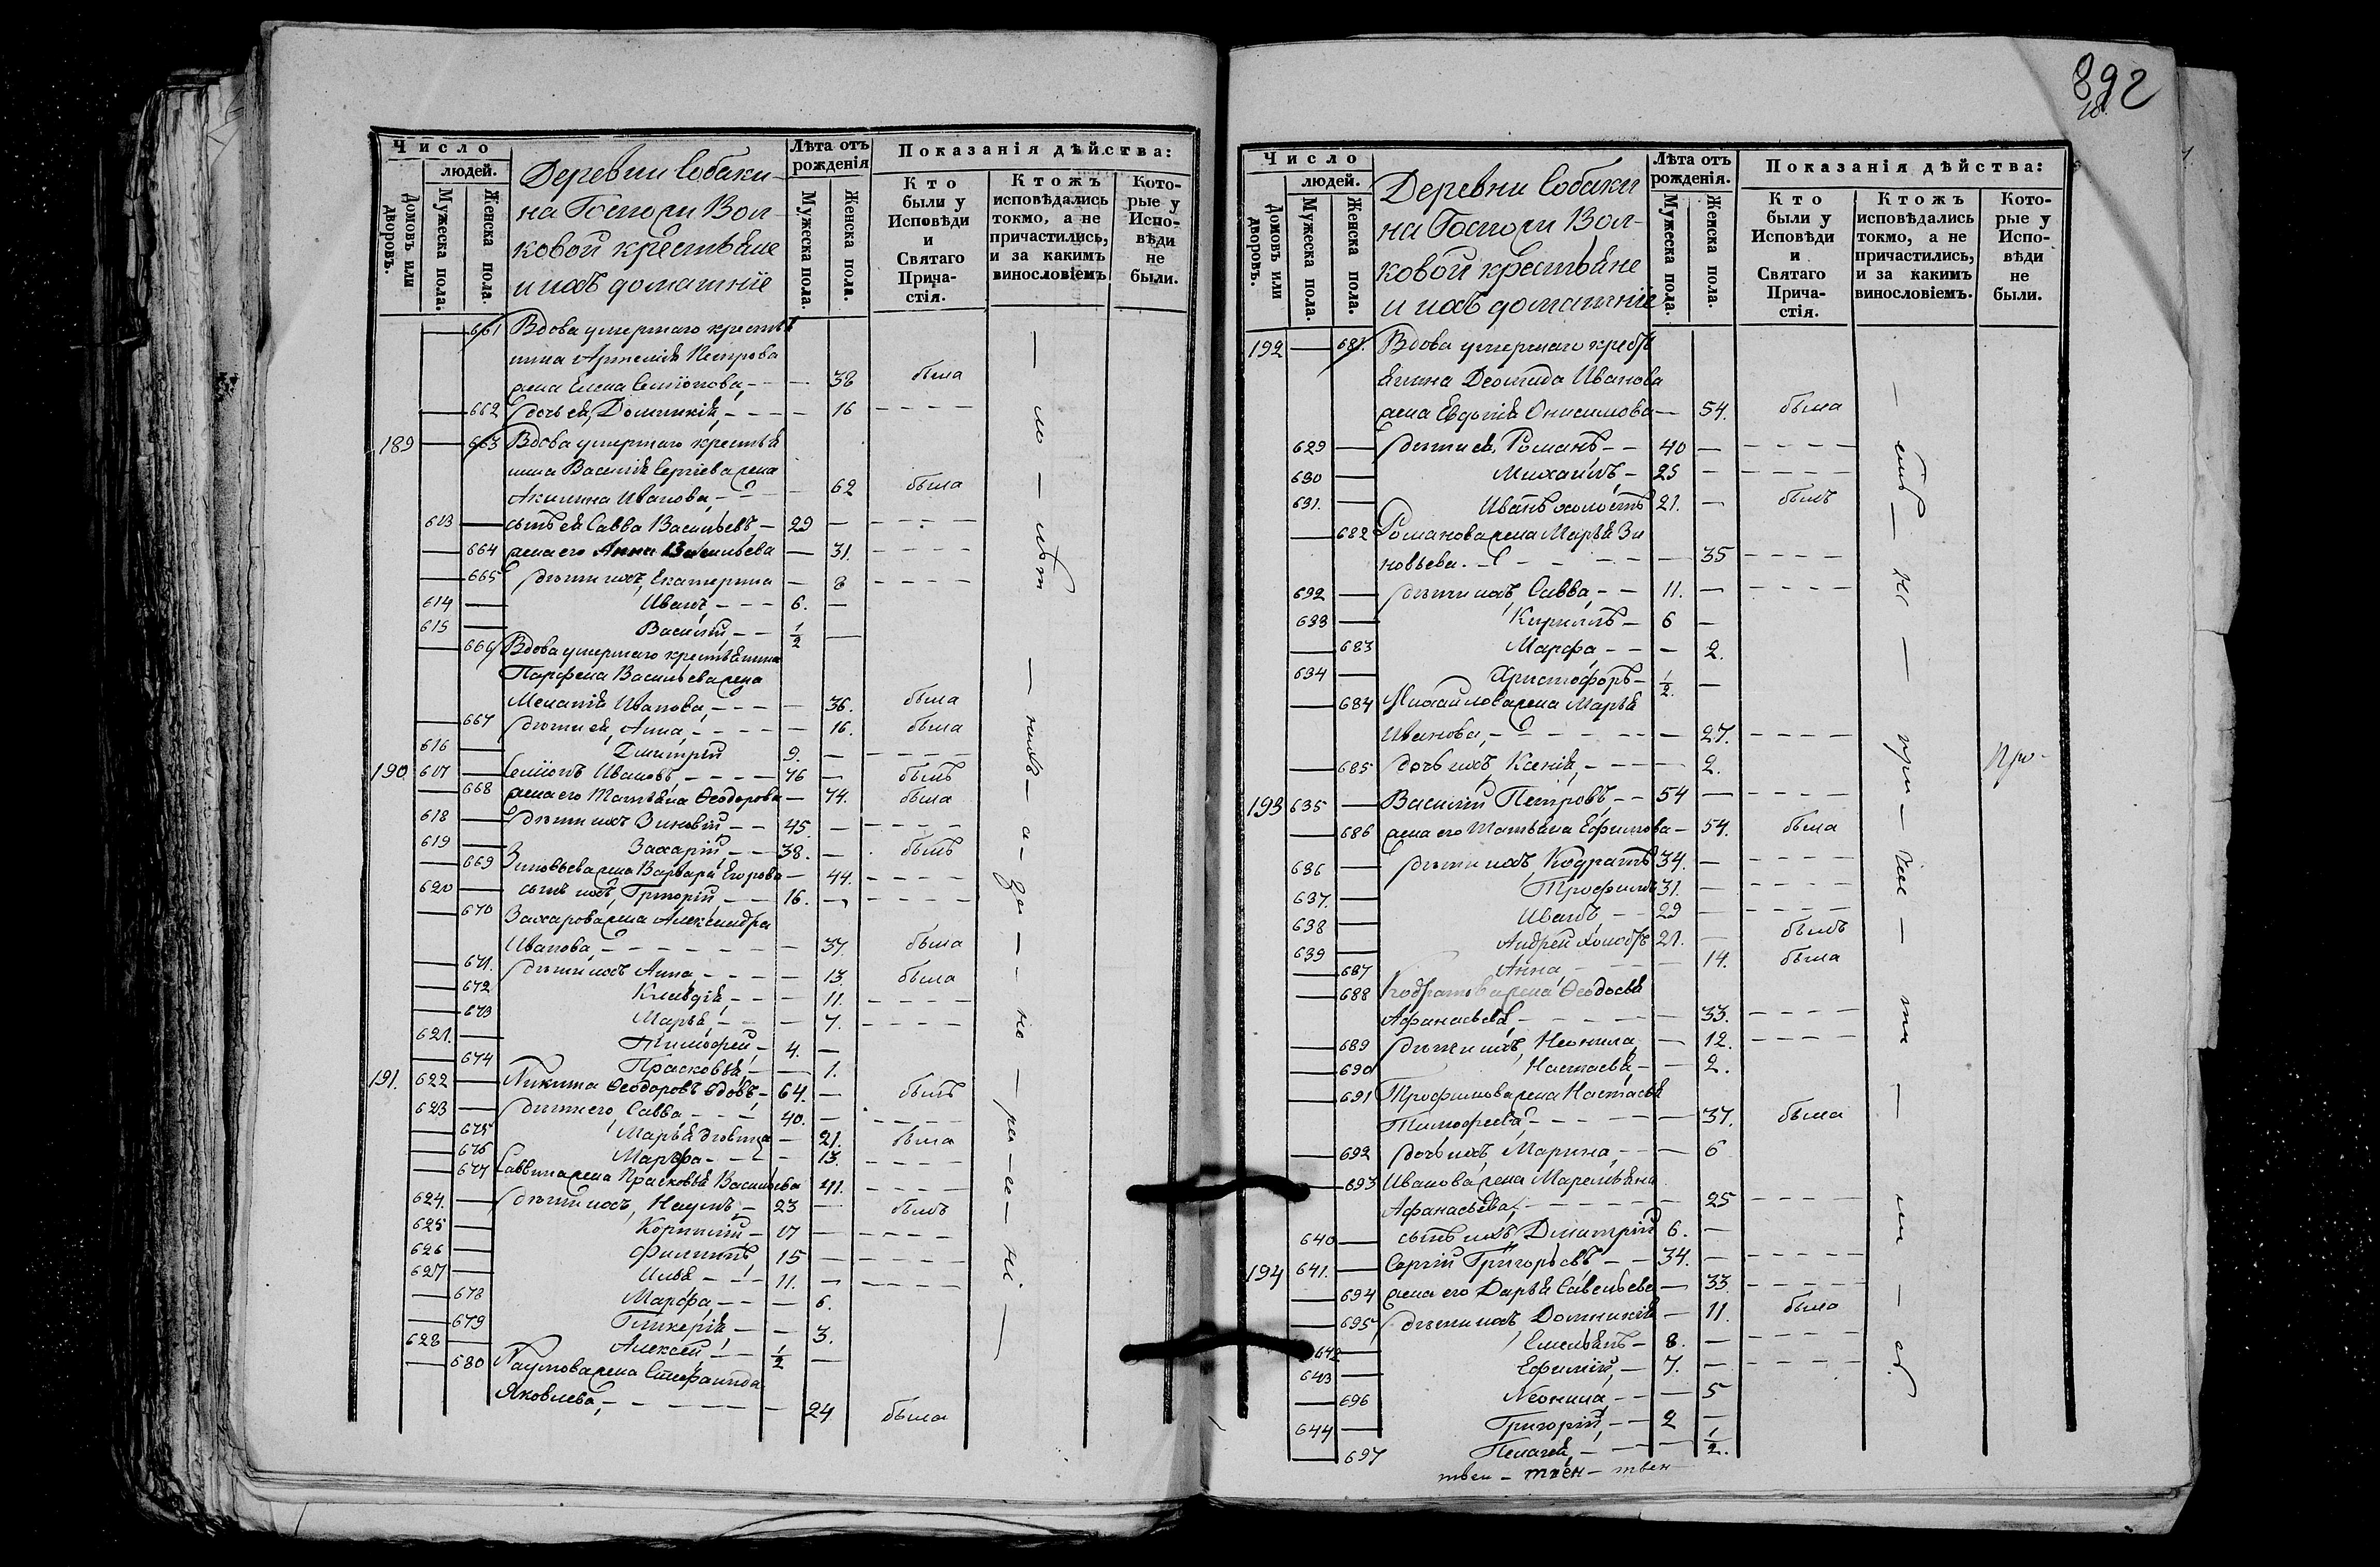 Число
людей.
Домовъ или дворовъ.
Мужеска пола.
Женска пола.
Деревни Собаки-
на Госпожи Вол-
ковой крестьяне
и ихъ домашніе
Лѣта отъ рожденія
Мужеска пола.
Женска пола.
Показанія дѣйства:
Кто были у Исповѣди и Святаго Прича-стія.
Ктожъ исповѣдались токмо, а не причастились, и за какимъ винословіемъ
Кото-рые у Испо-вѣди не были.
— 661 Вдова умершаго крестья
нина Артемія Петрова
жена Елена Семіонова, — — 38 была
— 662 дочь ея, Домникія, — — — — 16 — — — —
189 — 663 Вдова умершаго крестья
нина Василія Сергіева жена
Акилина Иванова, — — — 62 была
613 — сынъ ея Савва Васильевъ — 29 — — — — —
— 664 жена его Анна Васильева — 31. — — — —
— 665 дѣти ихъ, Екатерина — 8 — — — —
614 — Иванъ, — — — 6. —
615 — Василій, — — 1/2 —
— 666 Вдова умершаго крестьянина
Парфена Васильева жена
Меланія Иванова, — — — — 36. была
— 667 дѣти ея, Анна, — — — — — 16. была
616 — Димитрій 9. — — — — —
190 617 — Семіонъ Ивановъ, — — — — 76 — былъ
— 668 жена его Татьяна Ѳеодорова — 74. была
618 — дѣти ихъ Зиновій — — 45. — — — — —
619 — Захарій, — — 38. — былъ
— 669 Зиновьева жена Варвара Егорова — 44. — — — —
620 — сынъ ихъ, Григорій, — — 16. — — — — —
— 670 Захарова жена Александра
Иванова, — — — — — — — 37. была
— 671. дѣти ихъ Анна, — — — — 13. была
— 672 Клавдія, — — — 11. — — — —
— 673 Марья, — — — 7. — — — —
621. — Тимофей, — 4. —
— 674 Прасковья, — — 1.
191. 622 — Никита Ѳеодоровъ вдовъ, — 64. — былъ
623 — дѣти его Савва — — — 40. — — — — —
— 675 Марья дѣвица — 21. была
— 676 Марѳа — — — — 13. — — — —
— 677 Саввина жена Прасковья Васильева 41. — — — —
624. — дѣти ихъ, Наумъ, — 23 — былъ
625 — Корнилій — 17 — — — — —
626 — Филиппъ 15 — — — — —
627 — Илья — — — 11. — — — — —
— 678 Марѳа, — — — 6.
— 679 Гликерія — — — 3.
628 — Алексѣй — — 1/2 —
— 680 Наумова жена Стефанида
Яковлева, — — — — — — — 24 была
892
Число
людей.
Домовъ или дворовъ.
Мужеска пола.
Женска пола.
Деревни Собаки
на Госпожи Вол-
ковой крестьяне
и ихъ домашніе
Лѣта отъ рожденія.
Мужеска пола.
Женска пола.
Показанія дѣйства:
Кто были у Исповѣди и Святаго Прича-стія.
Ктожъ исповѣдались токмо, а не причастились, и за какимъ винословіемъ.
Кото-рые у Испо-вѣди не были.
192 — 681. Вдова умершаго кресть
янина Леонида Иванова
жена Евдокія Онисимова — 54. была
629 — дѣти ея, Романъ, — — 40 — — — — —
630 — Михаилъ, — 25 — — — — —
631. — Иванъ холостъ 21. — былъ
— 682 Романова жена Марья Зи
новьева. — — — — — — 35 — — — —
632 — дѣти ихъ, Савва, — — 11. — — — — —
633 — Кириллъ — 6 —
— 683 Марфа, — — — 2.
634 — Христофоръ — 1/2. —
— 684 Михайлова жена Марья
Иванова, — — — — — — — 27. — — — —
— 685 дочь ихъ, Ксенія, — — — — 2.
193 635 — Василій Петровъ, — — 54 — — — — —
— 686 жена его Татьяна Ефимова — 54. была
636 — дѣти ихъ, Кодратъ 34. — — — — —
637. — Трофимъ 31. — — — — —
638 — Иванъ, — — 29 — — — — —
639 — Андрей холостъ 21. — былъ
— 687 Анна — — — — 14. была
— 688 Кодратова жена Ѳеодосья
Афанасьева, — — — — — — 33. — — — —
— 689 дѣти ихъ, Неонила, — 12. — — — —
— 690 Настасья, — — 2.
— 691 Трофимова жена Настасья
Тимофеева, — — — — — 37. была
— 692 дочь ихъ, Марина, — — — 6
— 693 Иванова жена Маремьяна
Афанасьева, — — — — — — 25 — — — —
640 — сынъ ихъ, Димитрій 6. —
194 641. — Сергій Григорьевъ — — 34. — — — — —
— 694 жена его Дарья Савельева — 33. — — — —
— 695 дѣти ихъ Домникія — 11. была
642 — Емельянъ — 8. — — — — —
643 — Ефимій, — 7. — — — — —
— 696 Неонила — — — 5
644 — Григорій, — — 2 —
— 697 Пелагея, — — — 1/2.
Про-
твен — твен — твен